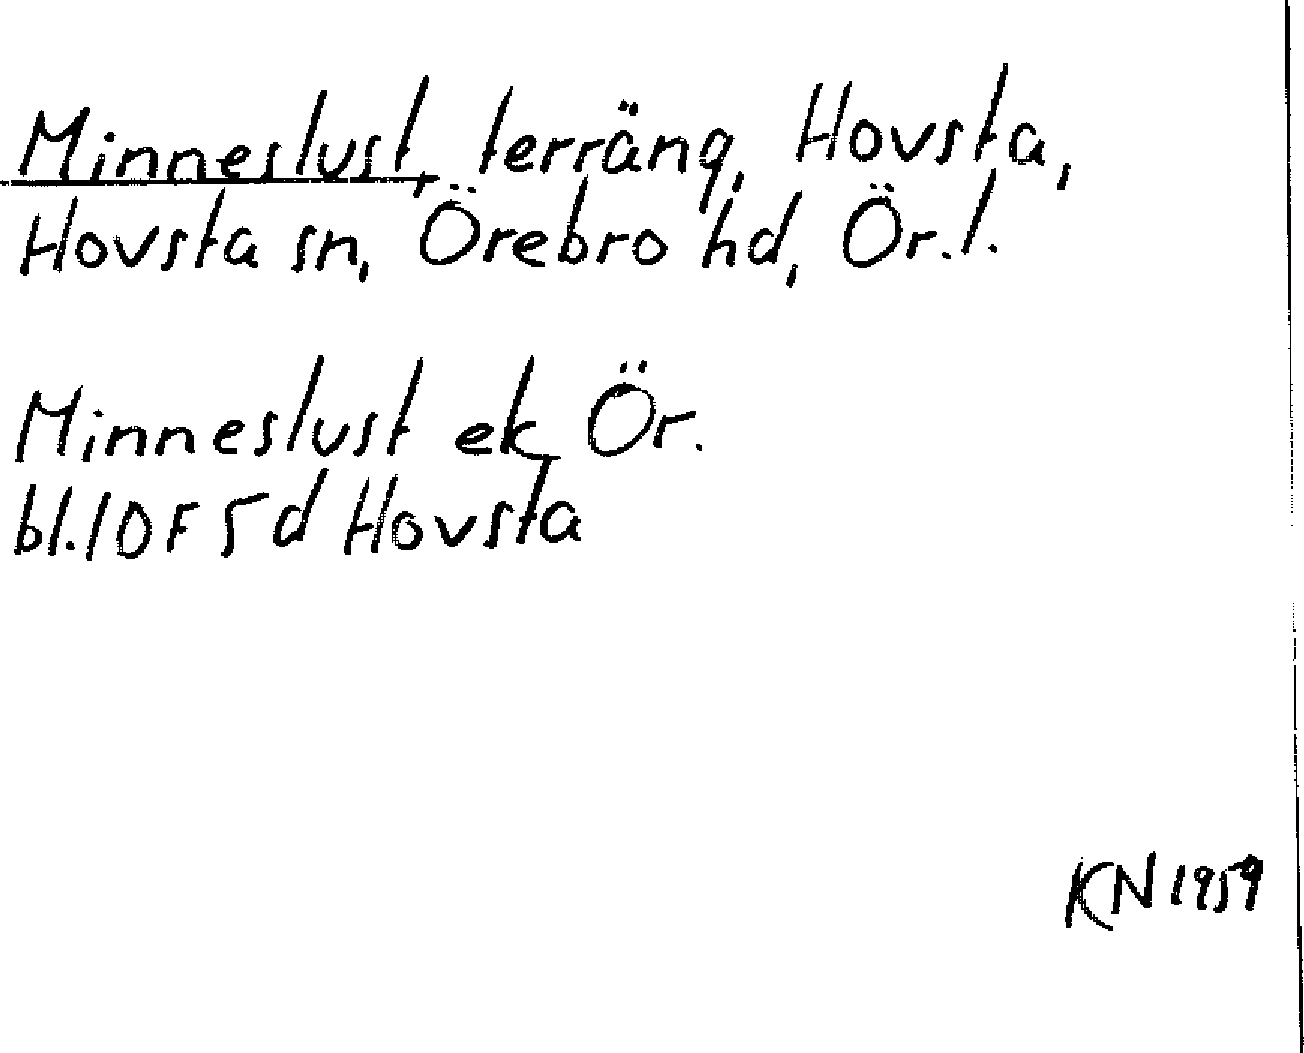 Minneslust, terräng, Hovsta,
Hovsta sn, Örebro hd, Ör. l.
Minneslust ek Ör.
bl. 10 F 5 d Hovsta
KN 1959